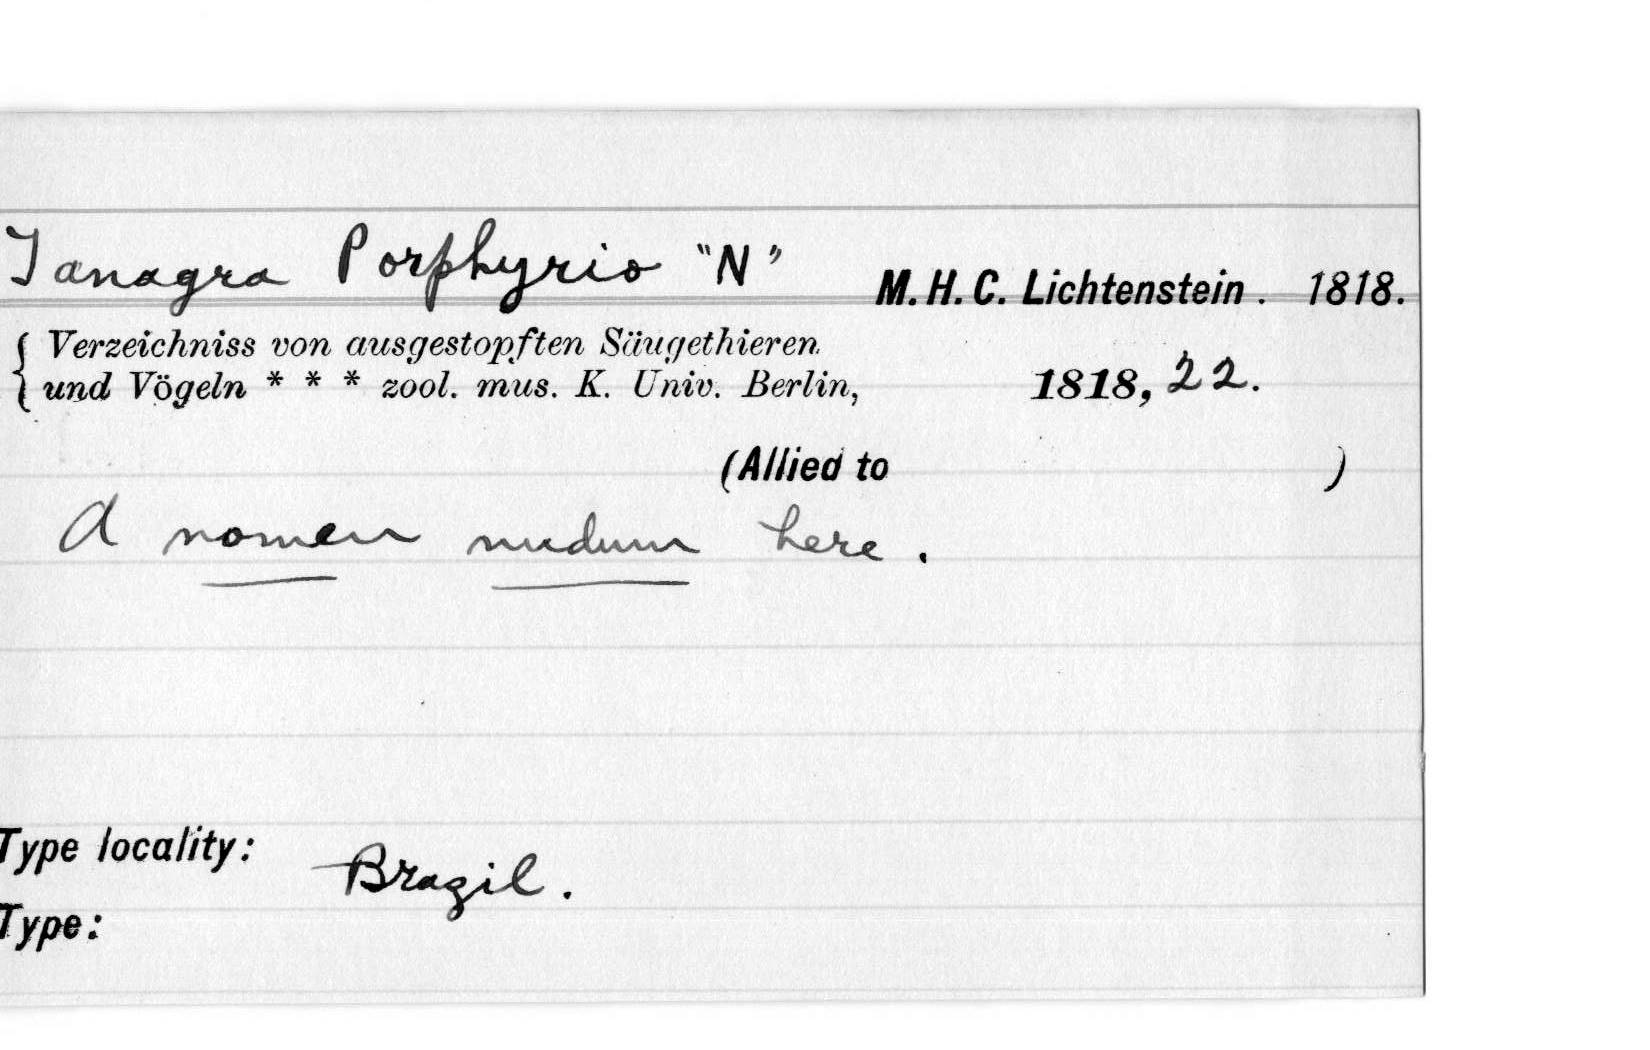 Tanagra Porphyrio "N" M. H. C. Lichtenstein. 1818.
{ Verzeichniss von ausgestopften Säugethieren
und Vögeln * * * zool. mus. K. Univ. Berlin, 1818, 22.
(Allied to )
A nomen nudum here.
Type locality: Brazil.
Type: